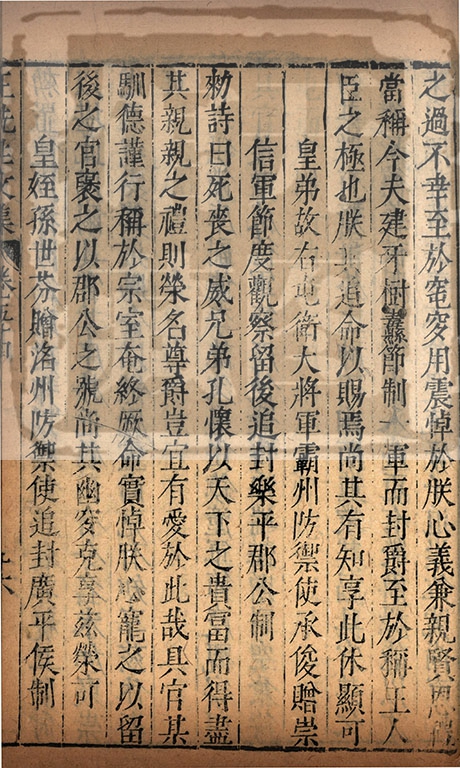 之過不幸至於窀穸用震悼於朕心義兼親賢恩禮
當稱今夫建牙樹纛節制一軍而封爵至於稱王人
臣之極也朕其追命以賜焉尚其有知享此休顯可
皇弟故右屯衛大將軍霸州防禦使承俊贈崇
信軍節度觀察留後追封樂平郡公制
勑詩曰死喪之威兄弟孔懷以天下之貴富而得盡
其親親之禮則榮名尊爵豈宜有愛於此哉具官某
馴德謹行稱於宗室奄終厥命實悼朕 寵之以留
後之官襃之以郡公之號尚其幽穸克享茲榮可
皇姪孫世芬贈洺州防禦使追封廣平侯制
王 文集 卷五十四